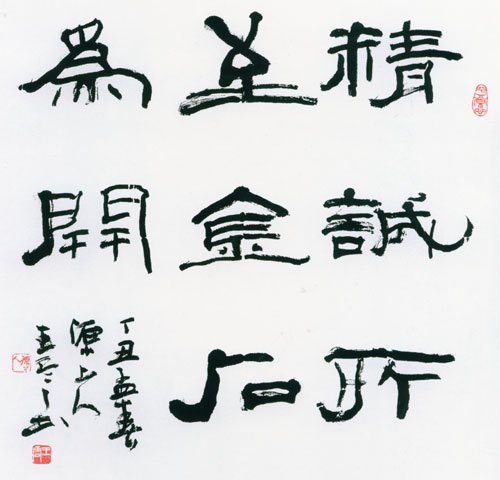 精誠所
至金石
為開
丁丑孟春
源上人
王